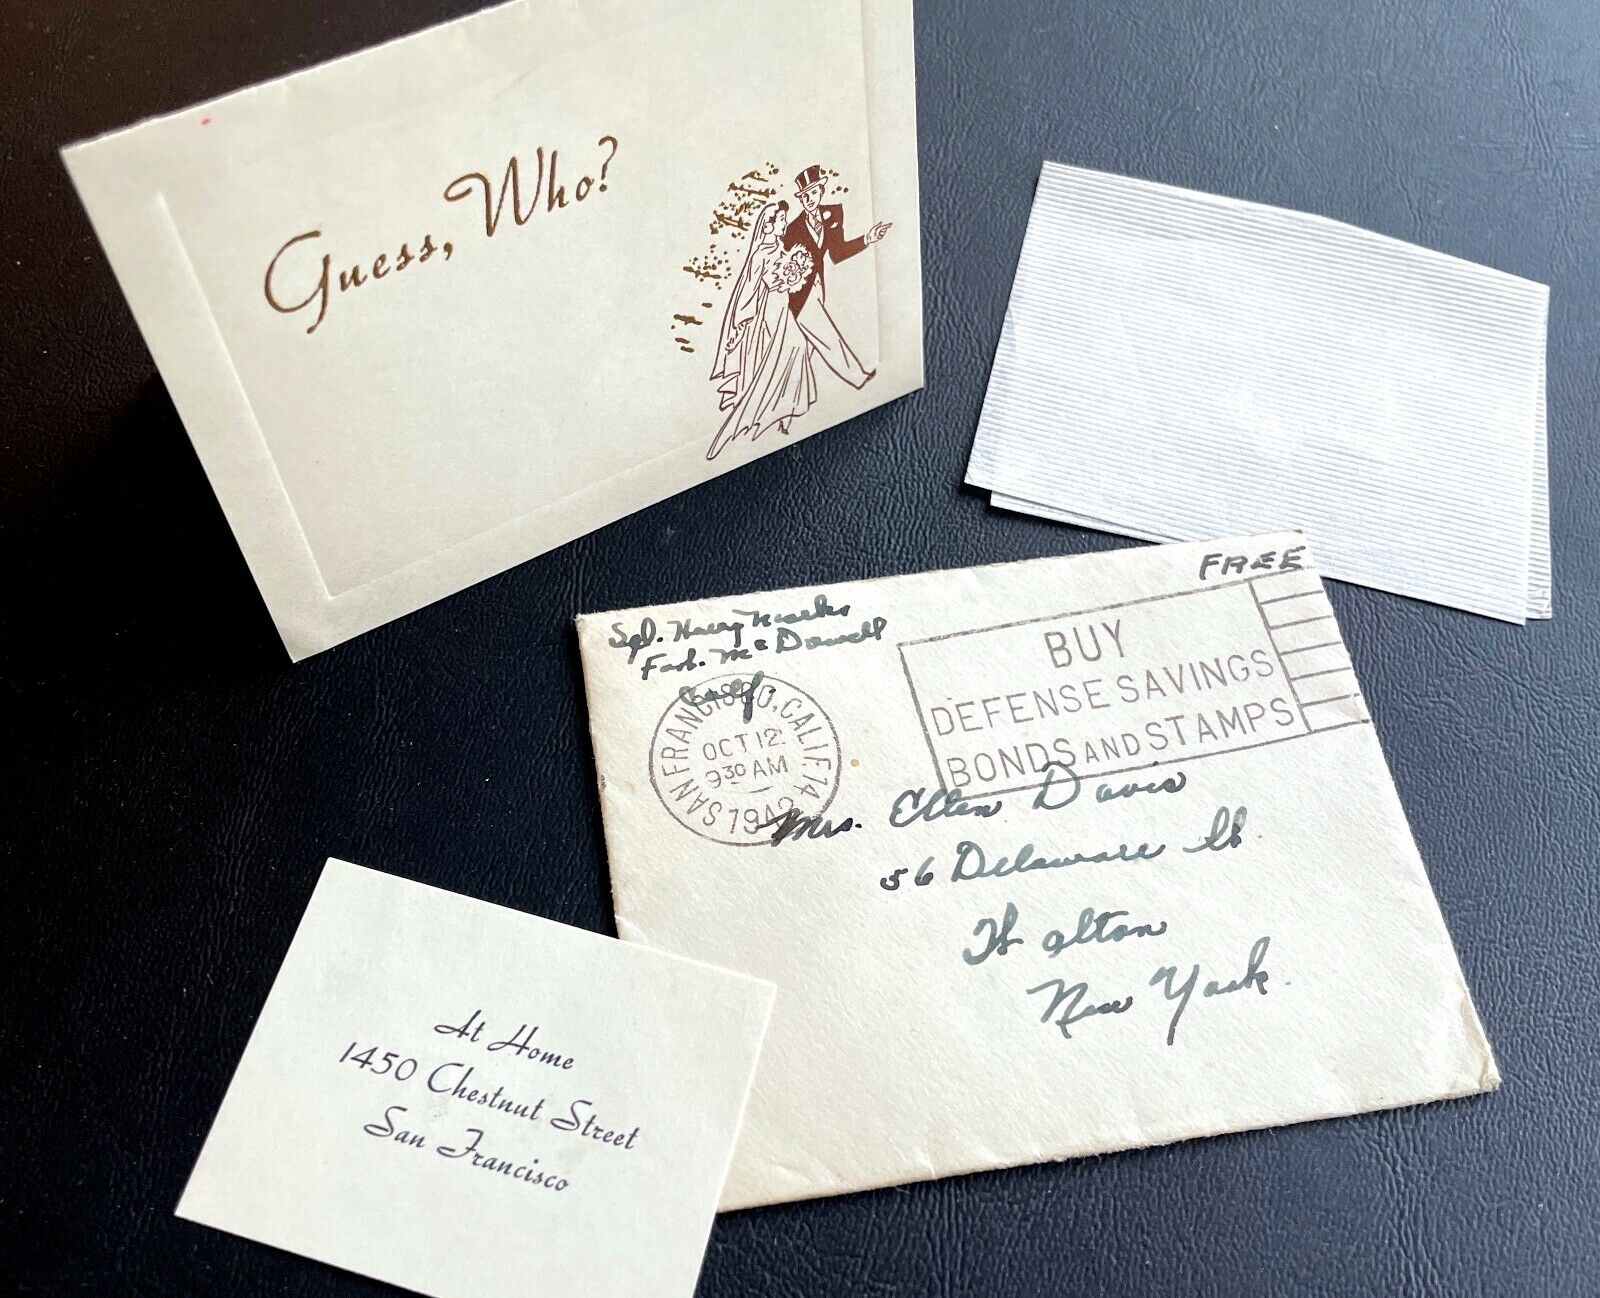 Guess, Who?
FREE
Harry Marks
Fort. McDowell
Calif.
SAN FRANCISCO, CALIF. 14
OCT 12
9 30 AM
1942
BUY
DEFENSE SAVINGS
BONDS AND STAMPS
Mrs. Ellen Davis
56 Delaware
Walton
New York.
At Home
1450 Chestnut Street
San Francisco